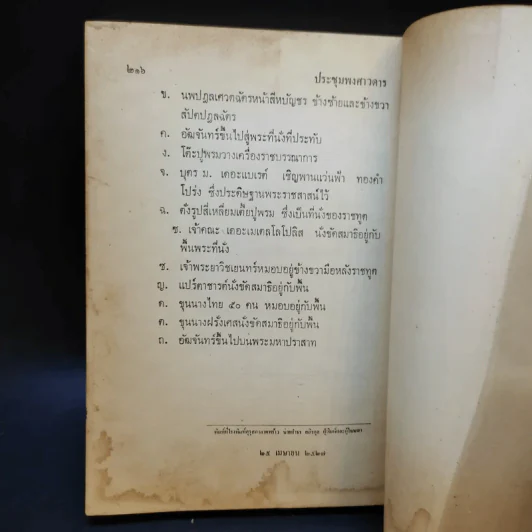 ๒๑๖
ประชุมพงศาวดาร
ข. นพปฎลเศวตฉัตรหน้าสีหบัญชร ข้างซ้ายและข้างขวา
สัปตปฎลฉัตร
ค. อัฒจันทร์ขึ้นไปสู่พระที่นั่งที่ประทับ
ง. โต๊ะปูพรมวางเครื่องราชบรรณาการ
จ. บุตร ม. เดอะแบเรต์ เชิญพานแว่นฟ้า ทองคำ
โปร่ง ซึ่งประดิษฐานพระราชสาสน์ไว้
ฉ. ตั่งรูปสี่เหลี่ยมเตี้ยปูพรม ซึ่งเป็นที่นั่งของราชทูต
ช. เจ้าคณะ เดอะเมเตลโลโปลิส นั่งขัดสมาธิอยู่กับ
พื้นพระที่นั่ง
ซ. เจ้าพระยาวิชเยนทร์หมอบอยู่ข้างขวามือหลังราชทูต
ญ. แปร์ตาชารด์นั่งขัดสมาธิอยู่กับพื้น
ด. ขุนนางไทย ๕๐ คน หมอบอยู่กับพื้น
ต. ขุนนางฝรั่งเศสนั่งขัดสมาธิอยู่กับพื้น
ถ. อัฒจันทร์ขึ้นไปบนพระมหาปราสาท
พิมพ์ที่โรงพิมพ์คุรุสภาลาดพร้าว
๒๕ เมษายน ๒๕๒๗